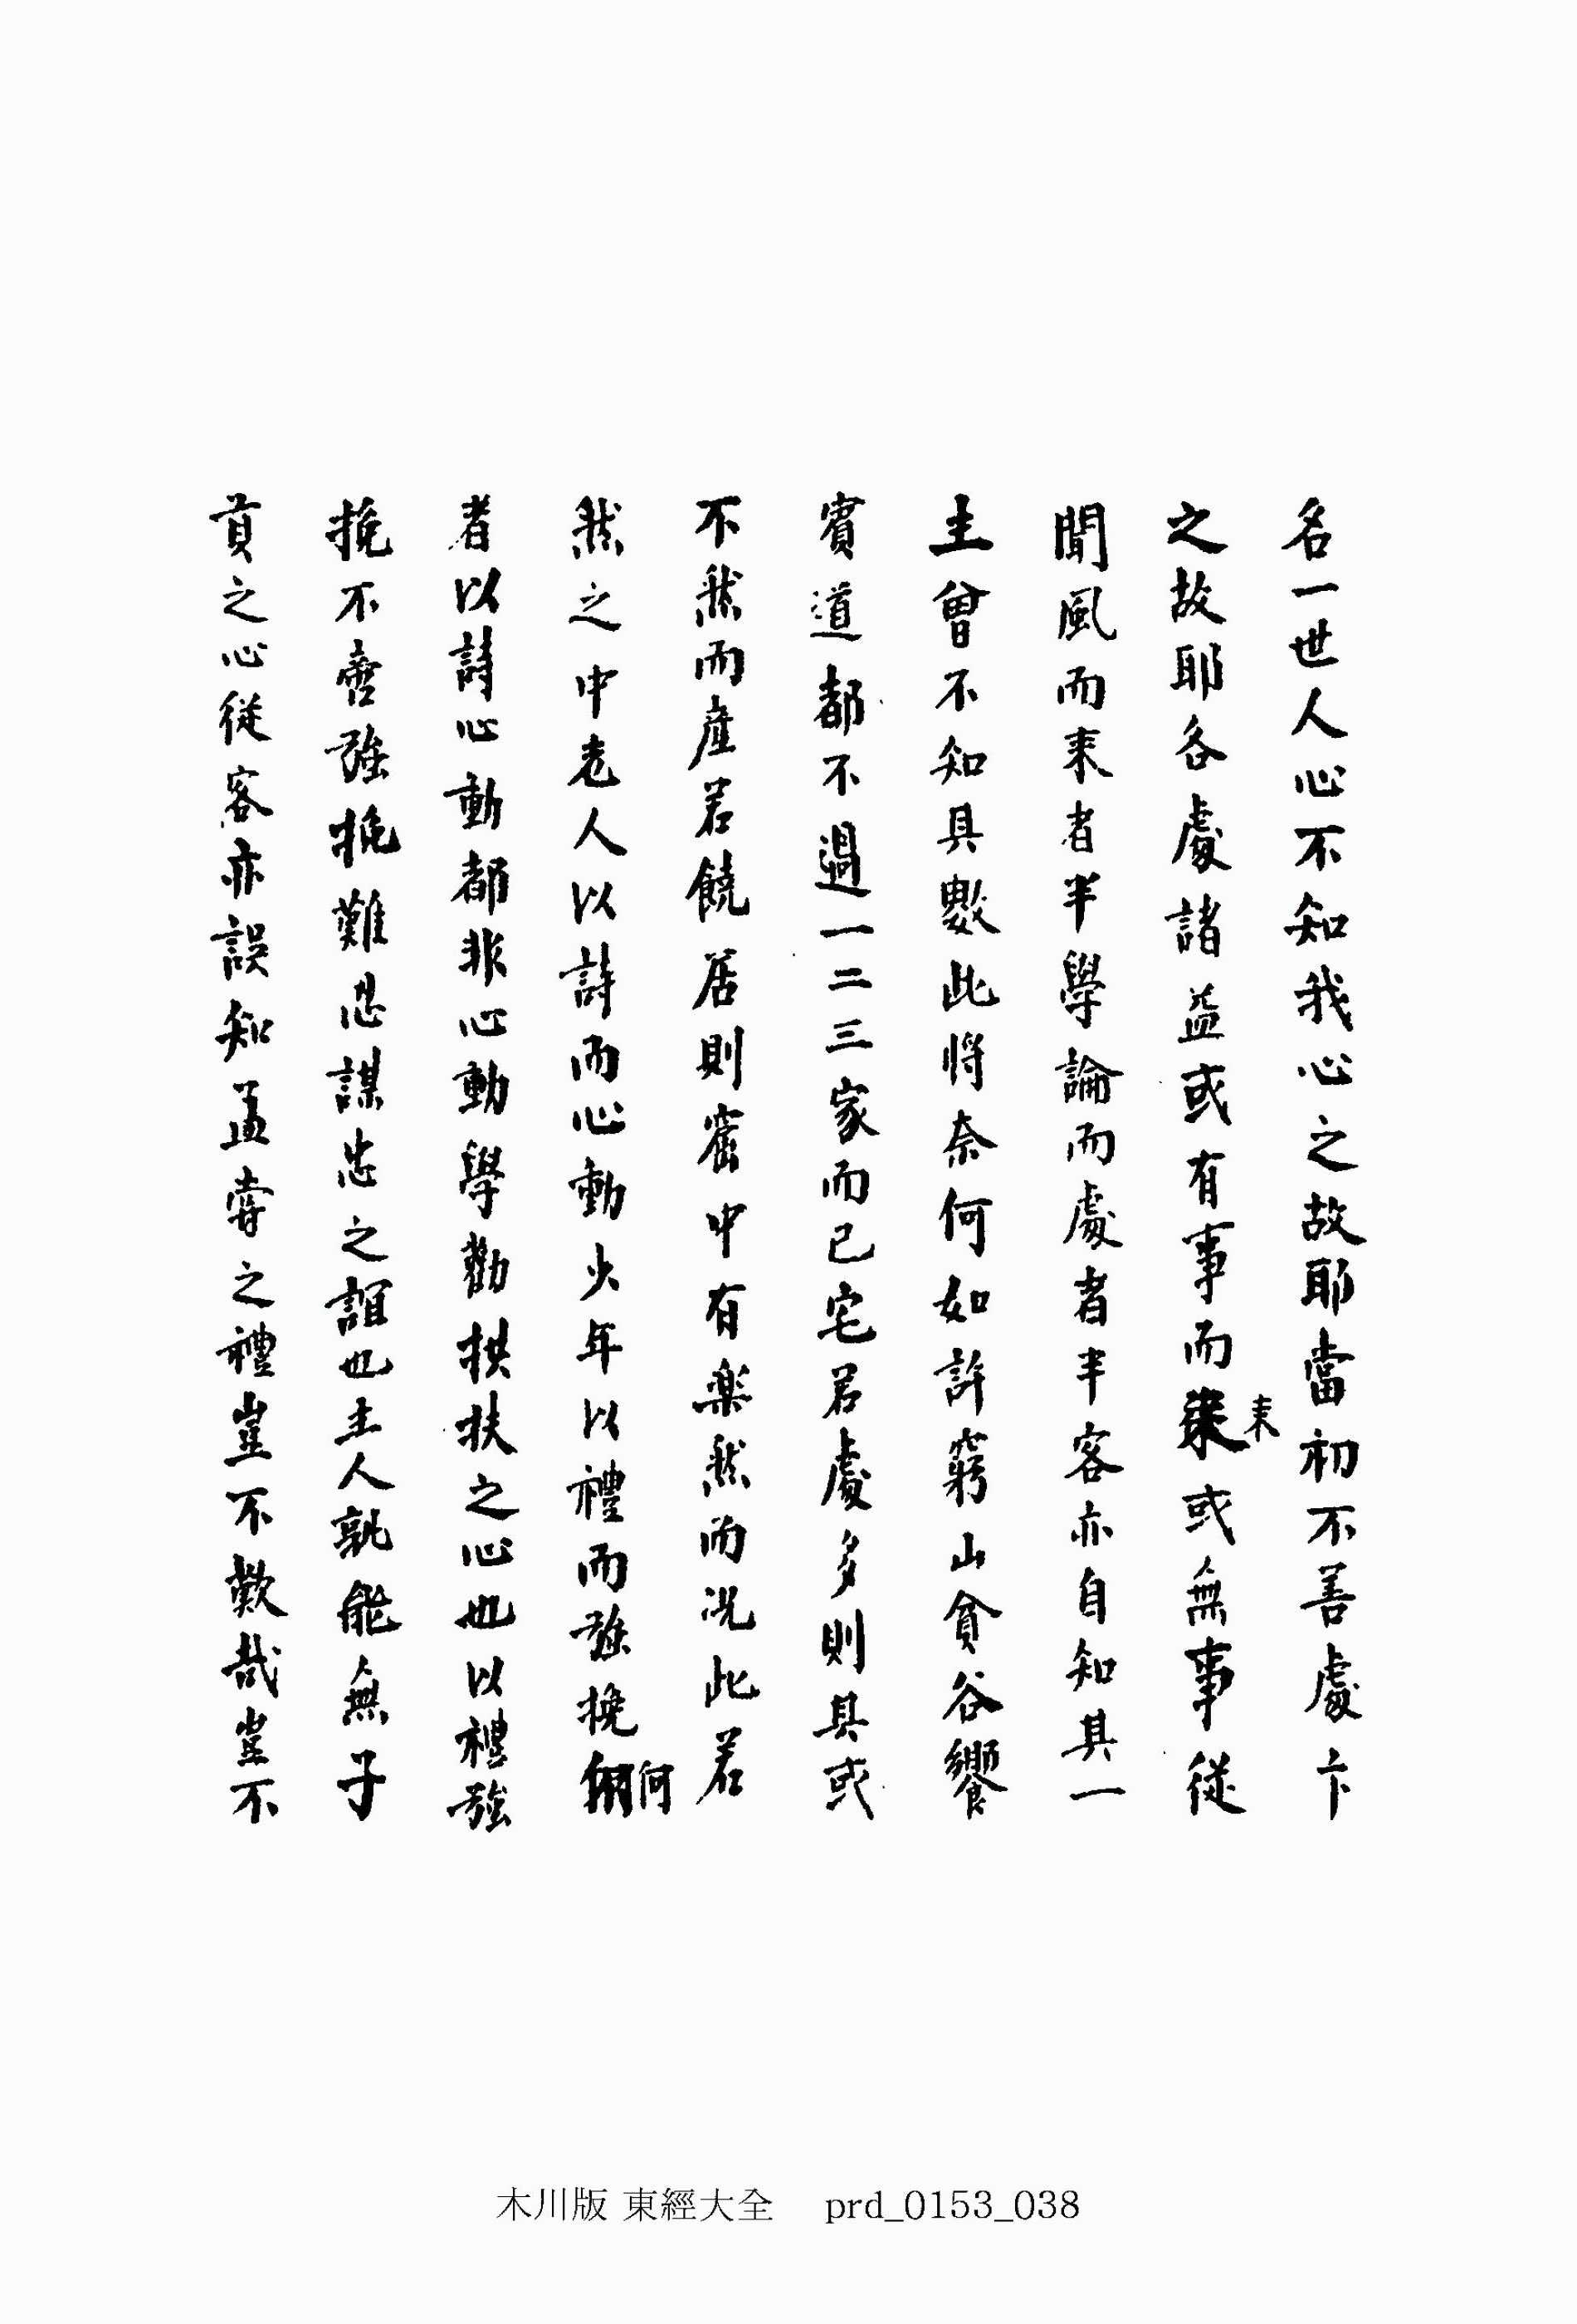 名一世人心不知我心之故耶當初不善處卞
之故耶各處諸益或有事而来或無事從
聞風而来者半學論而處者半客亦自知其一
主曾不知具數此將奈何如許窮山貧谷饗
賓道都不過一二三家而已宅若處多則具或
不然而産若饒居則窟中有楽然而况此若
然之中老人以詩而心動少年以禮而強挽何
者以詩心動都非心動學勸拱扶之心也以禮強
挽不啻強挽難忍謀忠之誼也主人孰能無子
貢之心從客亦誤知孟嘗之禮豈不歎哉豈不
木川版 東經大全 prd_0153_038